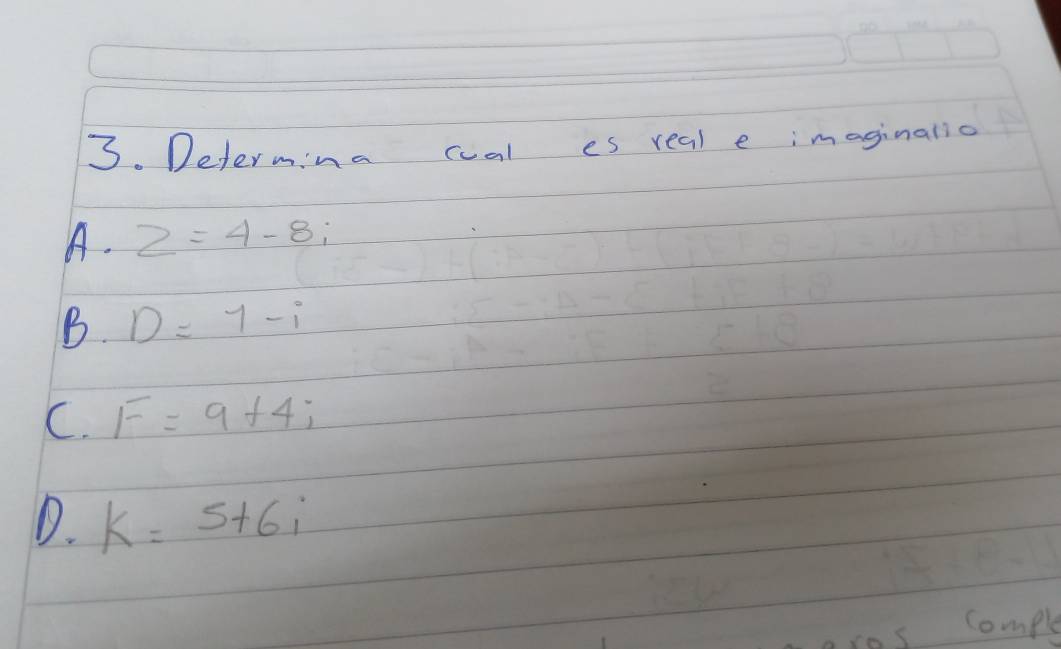 3. Determina cual es real e imaginario
A. Z = 4 - 8i
B. D = 1 - i
C. F = 9 + 4i
D. K = 5 + 6i
comple